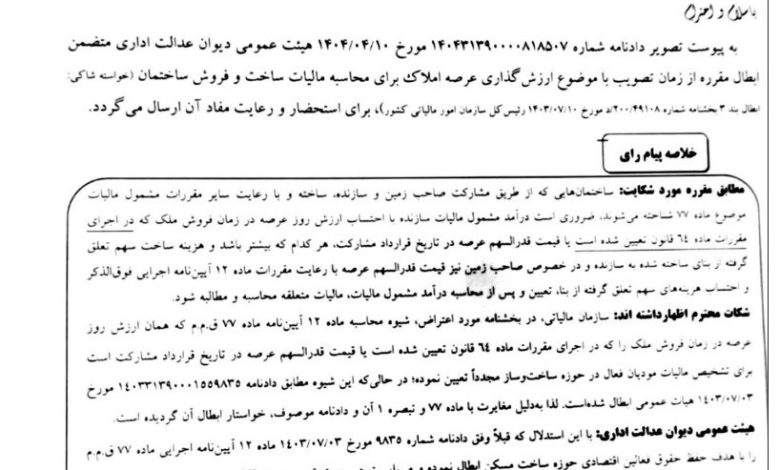 باسلام و احترام
به پیوست تصویر دادنامه شماره ۱۴۰۴۳۱۳۹۰۰۰۰۸۱۸۵۰۷ مورخ ۱۴۰۴/۰۴/۱۰ هیئت عمومی دیوان عدالت اداری متضمن
ابطال مقرره از زمان تصویب با موضوع ارزش‌گذاری عرصه املاک برای محاسبه مالیات ساخت و فروش ساختمان (خواسته شاکی:
ابطال بند ۳ بخشنامه شماره ۲۰۰/۴۹۱۰۸/د مورخ ۱۴۰۳/۰۷/۱۰ رئیس کل سازمان امور مالیاتی کشور)، برای استحضار و رعایت مفاد آن ارسال می‌گردد.
خلاصه پیام رای
مطابق مقرره مورد شکایت: ساختمان‌هایی که از طریق مشارکت صاحب زمین و سازنده، ساخته و با رعایت سایر مقررات مشمول مالیات
موضوع ماده ۷۷ شناخته می‌شوند، ضروری است درآمد مشمول مالیات سازنده با احتساب ارزش روز عرصه در زمان فروش ملک که در اجرای
مقررات ماده ۶۴ قانون تعیین شده است یا قیمت قدرالسهم عرصه در تاریخ قرارداد مشارکت، هر کدام که بیشتر باشد و هزینه ساخت سهم تعلق
گرفته از بنای ساخته شده به سازنده و در خصوص صاحب زمین نیز قیمت قدرالسهم عرصه با رعایت مقررات ماده ۱۲ آیین‌نامه اجرایی فوق‌الذکر
و احتساب هزینه‌های سهم تعلق گرفته از بنا، تعیین و پس از محاسبه درآمد مشمول مالیات، مالیات متعلقه محاسبه و مطالبه شود.
شکات محترم اظهارداشته اند: سازمان مالیاتی، در بخشنامه مورد اعتراض، شیوه محاسبه ماده ۱۲ آیین‌نامه ماده ۷۷ ق.م.م که همان ارزش روز
عرصه در زمان فروش ملک را که در اجرای مقررات ماده ۶۴ قانون تعیین شده است یا قیمت قدرالسهم عرصه در تاریخ قرارداد مشارکت است
برای تشخیص مالیات مودیان فعال در حوزه ساخت‌وساز مجدداً تعیین نموده؛ در حالی‌که این شیوه مطابق دادنامه ۱۴۰۳۳۱۳۹۰۰۰۱۵۵۹۸۳۵ مورخ
۱۴۰۳/۰۷/۰۳ هیات عمومی ابطال شده‌است. لذا به‌دلیل مغایرت با ماده ۷۷ و تبصره ۱ آن و دادنامه موصوف، خواستار ابطال آن گردیده است.
هیئت عمومی دیوان عدالت اداری: با این استدلال که قبلاً وفق دادنامه شماره ۹۸۳۵ مورخ ۱۴۰۳/۰۷/۰۳ ماده ۱۲ آیین‌نامه اجرایی ماده ۷۷ ق.م.م
را با هدف حفظ حقوق فعالین اقتصادی حوزه ساخت مسکن ابطال نموده و